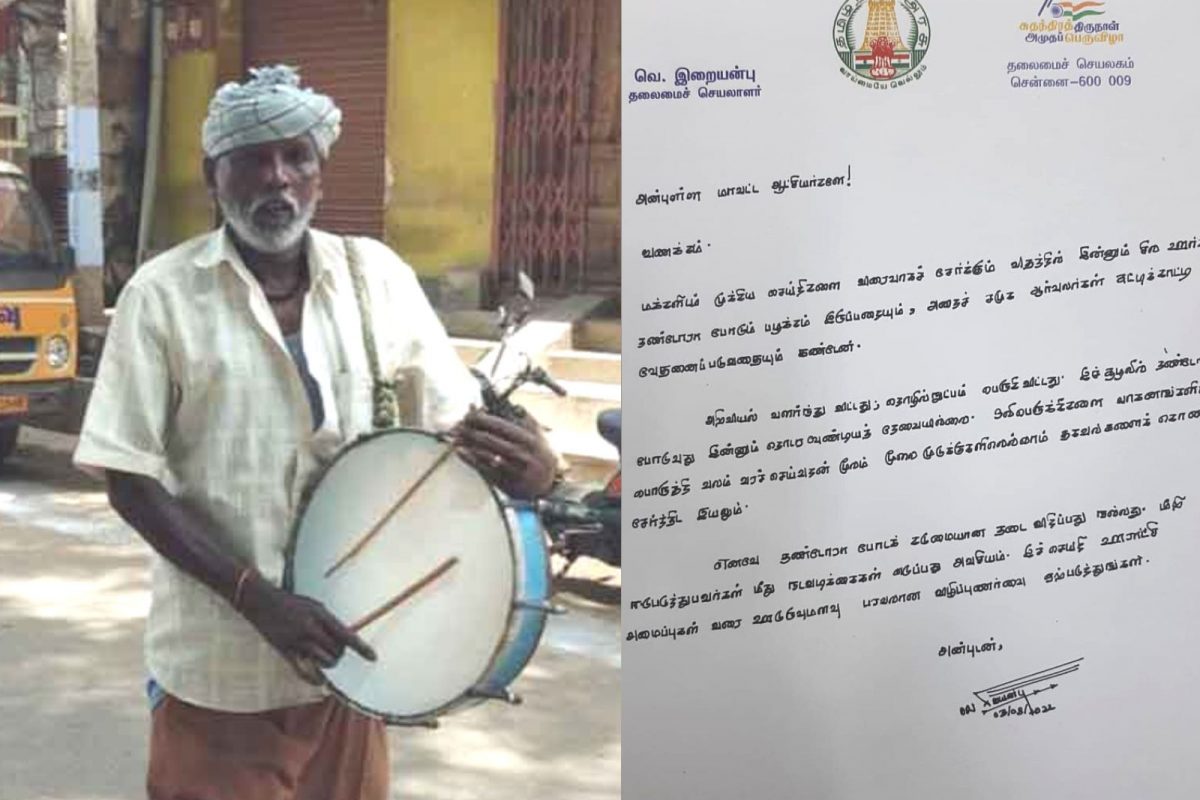 தமிழ்நாடு அரசு
வாய்மையே வெல்லும்
75
சுதந்திரத் திருநாள்
அமுதப் பெருவிழா
வெ. இறையன்பு
தலைமைச் செயலாளர்
தலைமைச் செயலகம்
சென்னை-600 009
அன்புள்ள மாவட்ட ஆட்சியர்களே!
வணக்கம்.
மக்களிடம் முக்கிய செய்திகளை விரைவாகச் சேர்க்கும் விதத்தில் இன்னும் சில
தண்டோரா போடும் பழக்கம் இருப்பதையும், அதைச் சமூக ஆர்வலர்கள் சுட்டிக்காட்டி
வேதனைப்படுவதையும் கண்டேன்.
அறிவியல் வளர்ந்து விட்டது; தொழில்நுட்பம் பெருகிவிட்டது. இச் சூழலில்
போடுவது இன்னும் தொடர வேண்டியத் தேவையில்லை. ஒலிபெருக்கிகளை
பொருத்தி வலம் வரச் செய்வதன் மூலம் மூலை முடுக்குகளிலெல்லாம் தகவல்களைக்
சேர்த்திட இயலும்.
எனவே தண்டோரா போடக் கடுமையான தடை விதிப்பது நல்லது. மீறி
ஈடுபடுத்துபவர்கள் மீது நடவடிக்கைகள் எடுப்பது அவசியம். இச் செய்தி ஊராட்சி
அமைப்புகள் வரை ஊடுருவுமளவு பரவலான விழிப்புணர்வை ஏற்படுத்துங்கள்.
அன்புடன்,
03/08/2022